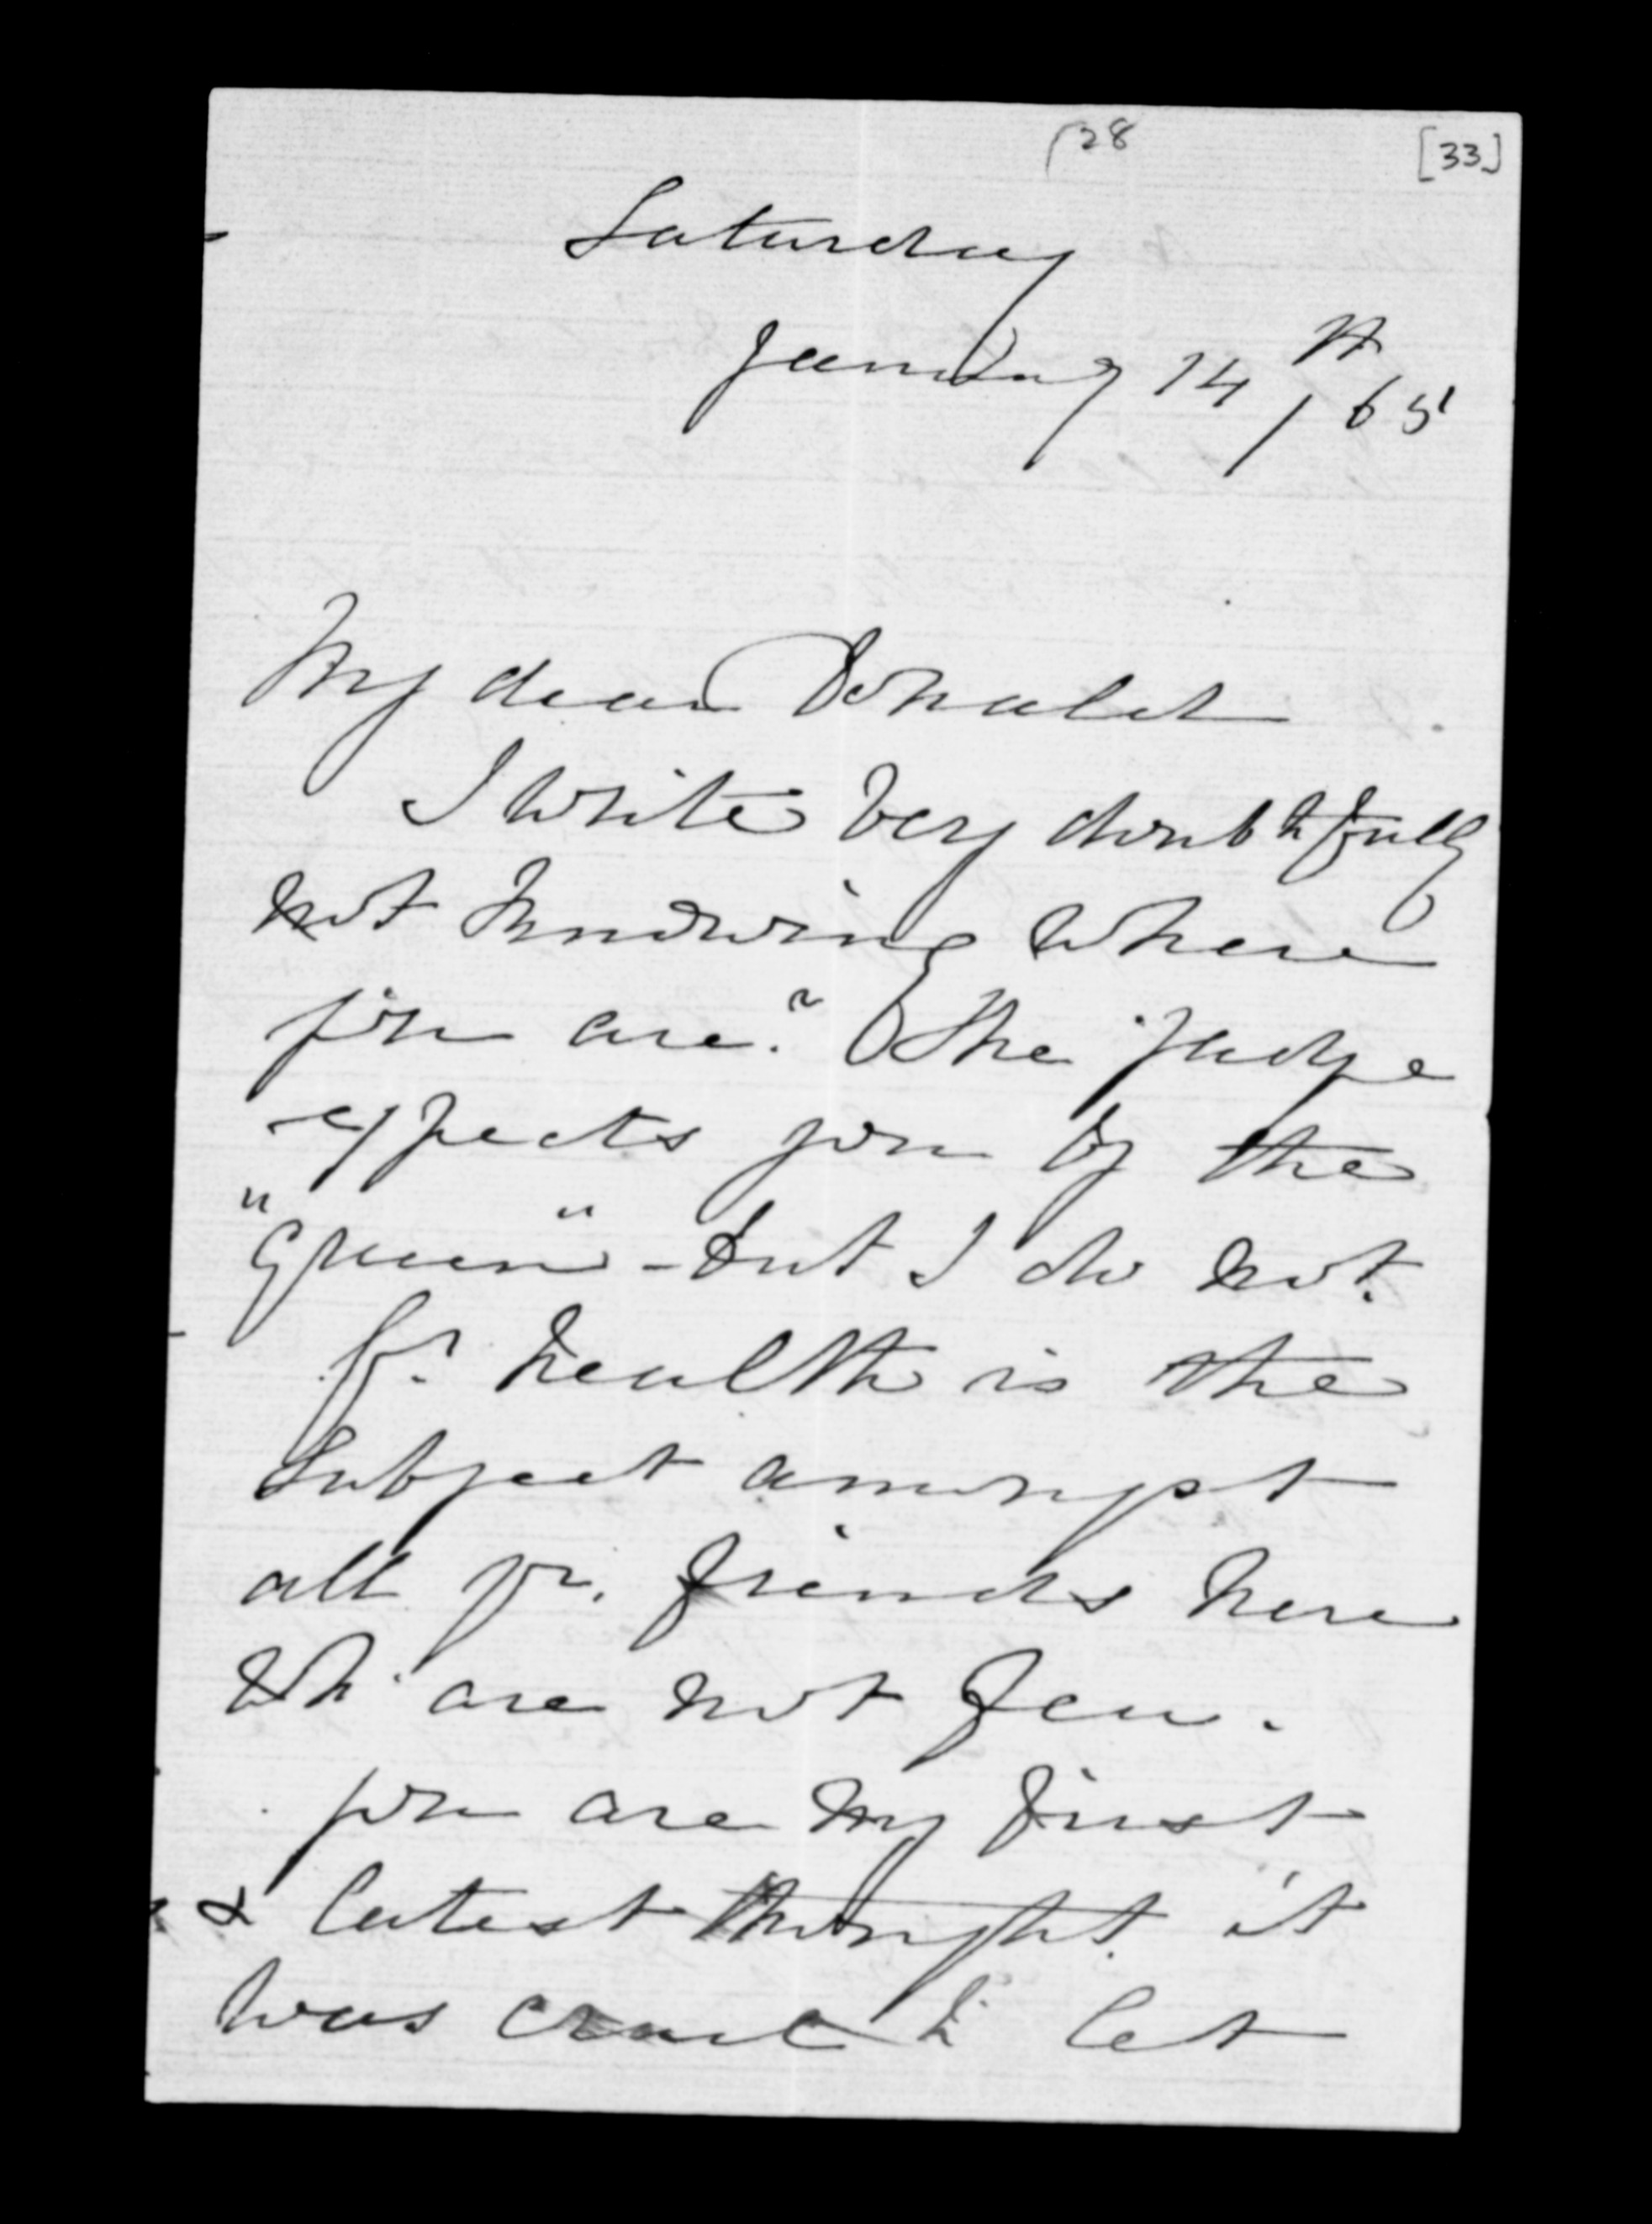 28
[33]
Saturday
January 14th/65
My dear Donald
I write very doubtfully
not knowing where
you are? The Judge
expects you by the
"Queen" - but I do not.
Yr. health is the
subject amongst
all yr. friends here
wh. are not few.
you are my first
& latest thought. it
was cruel to let